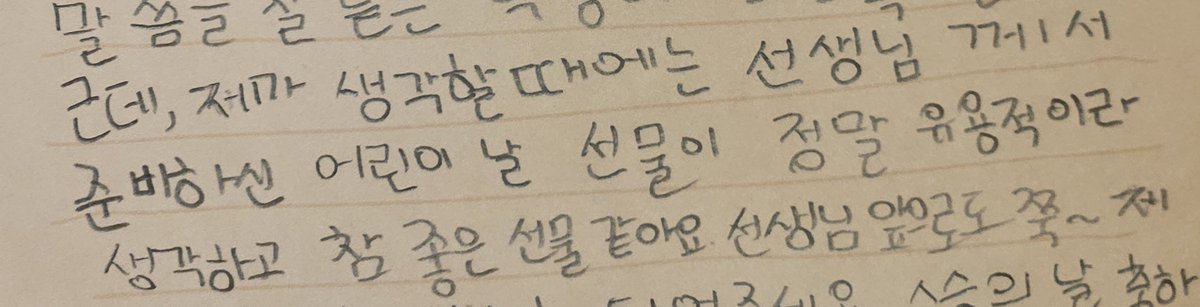 말씀을 잘 듣는
근데, 저가 생각할 때에는 선생님 께서
준비하신 어린이 날 선물이 정말 유용적이라
생각하고 참 좋은 선물 같아요 선생님 앞으로도 쭉~ 제
스승의 날 축하